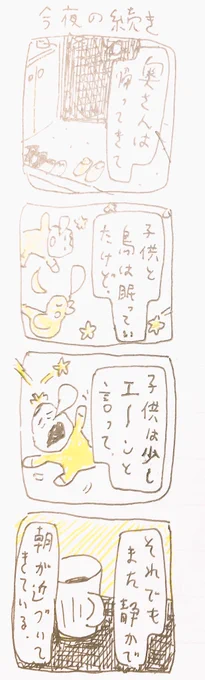 今夜の続き
奥さんは
帰ってきて
子供と
鳥は眠ってい
たけど、
子供は少し
エーンと
言って、
それでも
また静かで
朝が近づいて
きている.